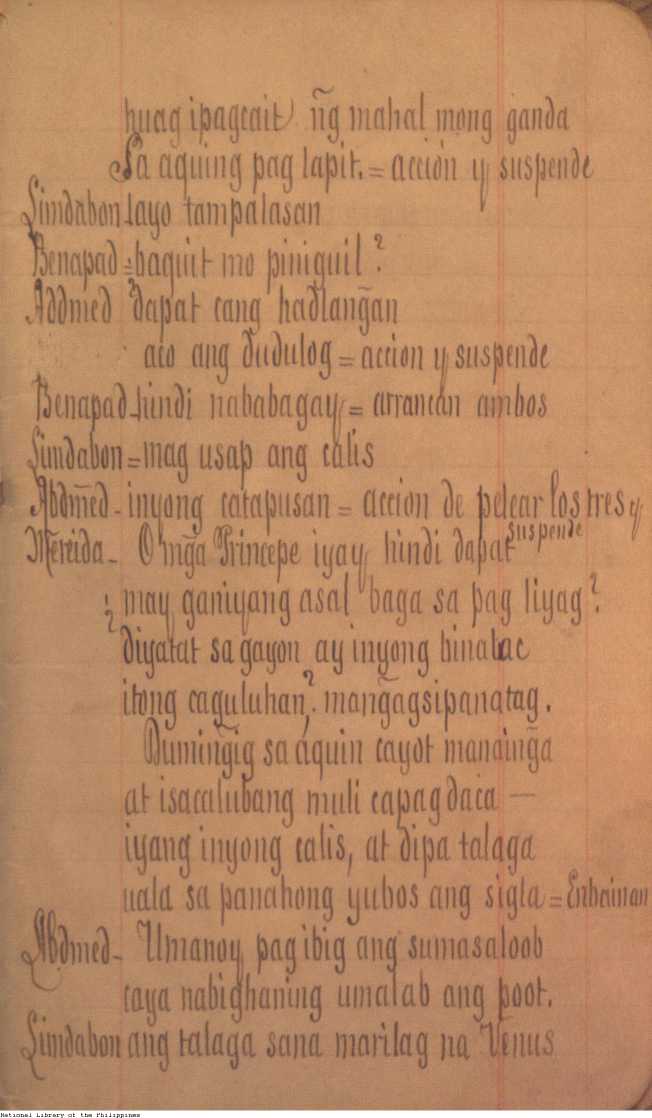 huag ipagcait n͠g mahal mong ganda
Sa aquing pag lapit. = acción y suspende
Limdabon - layo tampalasan
Benapad = baquit mo piniguil ?
Abdmed - dapat cang hadlan͠gan
aco ang dudulog = accion y suspende
Benapad - hindi nababagay = arrancan ambos
Limdabon = mag usap ang calis
Abdmed - inyong catapusan = accion de pelear los tres y
suspende
Mereida - O man͠ga Principe iyay hindi dapat
¿ may ganiyang asal baga sa pag liyag ?
¿ diyatat sa gayon ay inyong binalac
itong caguluhan ? man͠gagsipanatag.
Dumin͠gig sa aquin cayot manain͠ga
at isacalubang muli capagdaca —
iyang inyong calis, at dipa talaga
uala sa panahong yubos ang sigla = Enbainan
Abdmed - Umanoy pag ibig ang sumasaloob
caya nabighaning umalab ang poot.
Limdabon ang talaga sana marilag na Venus
National Library of the Philippines